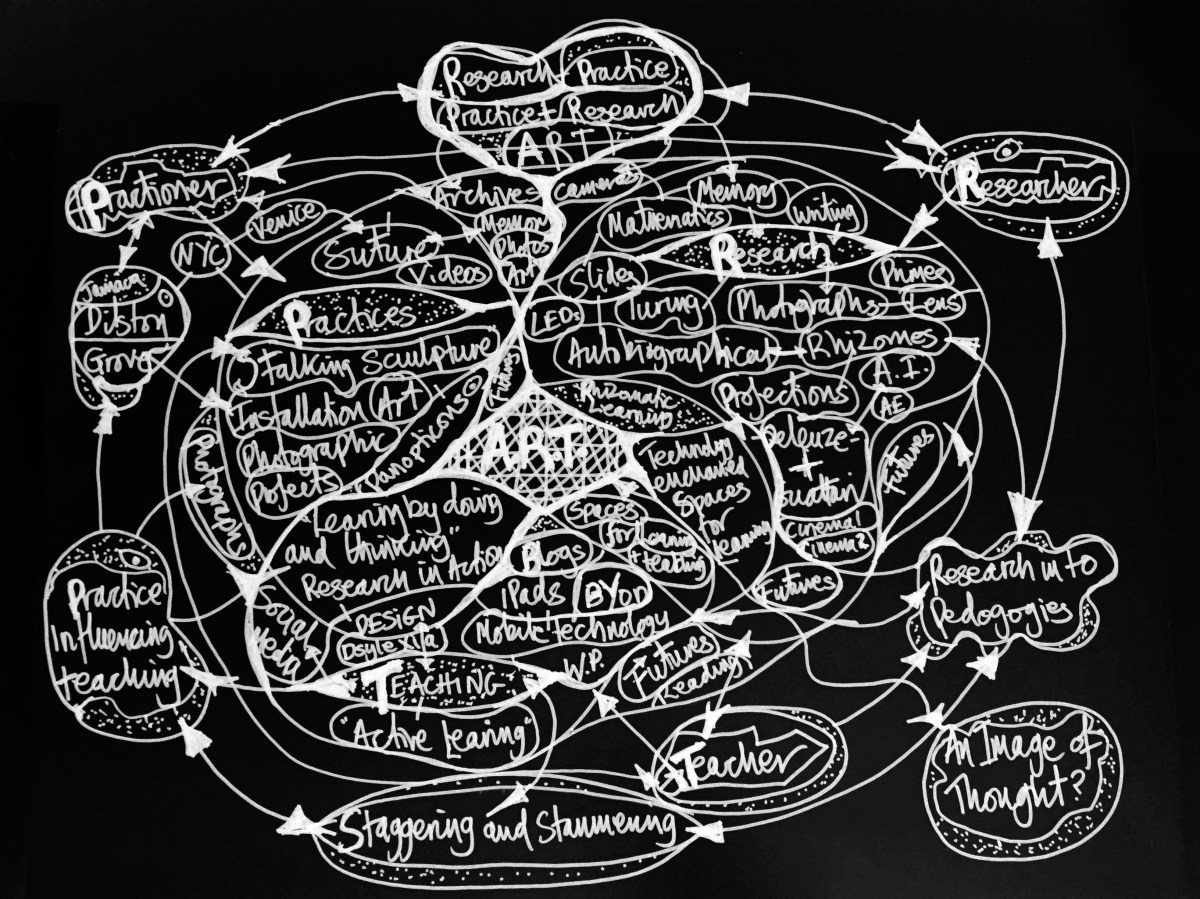 Research Practice
Practice + Research
ART
Practioner
Researcher
Archives
Cameras
Memory
Venice
Memory
Photos
Art
Mathematics
Writing
NYC
Suture
Videos
Research
Slides
Primes
Jamaica
Dilston
Grove
Practices
LEDs
Turing
Photographs
Lens
Stalking Sculpture
Autobiographical
Rhizomes
A.I
Installation Art
Panopticons
Rhizomatic
Learning
Projections
AE
Photographic
Projects
ART
Photographs
Technology
enchanted
Spaces
for
Learning
Deleuze
+
Guattari
Cinema 1
Cinema 2
Futures
"Learning by doing
and thinking"
Research in Action
Spaces
for Learning
+ teaching
Blogs
iPads BYOD
Futures
Social
Media
DESIGN
Dsylexia
Mobile technology
Practice
Influencing
teaching
Research in to
Pedogogies
TEACHING
W.P.
Futures
Leading
"Active learing"
Teacher
An Image of
Thought?
Staggering and Stammering